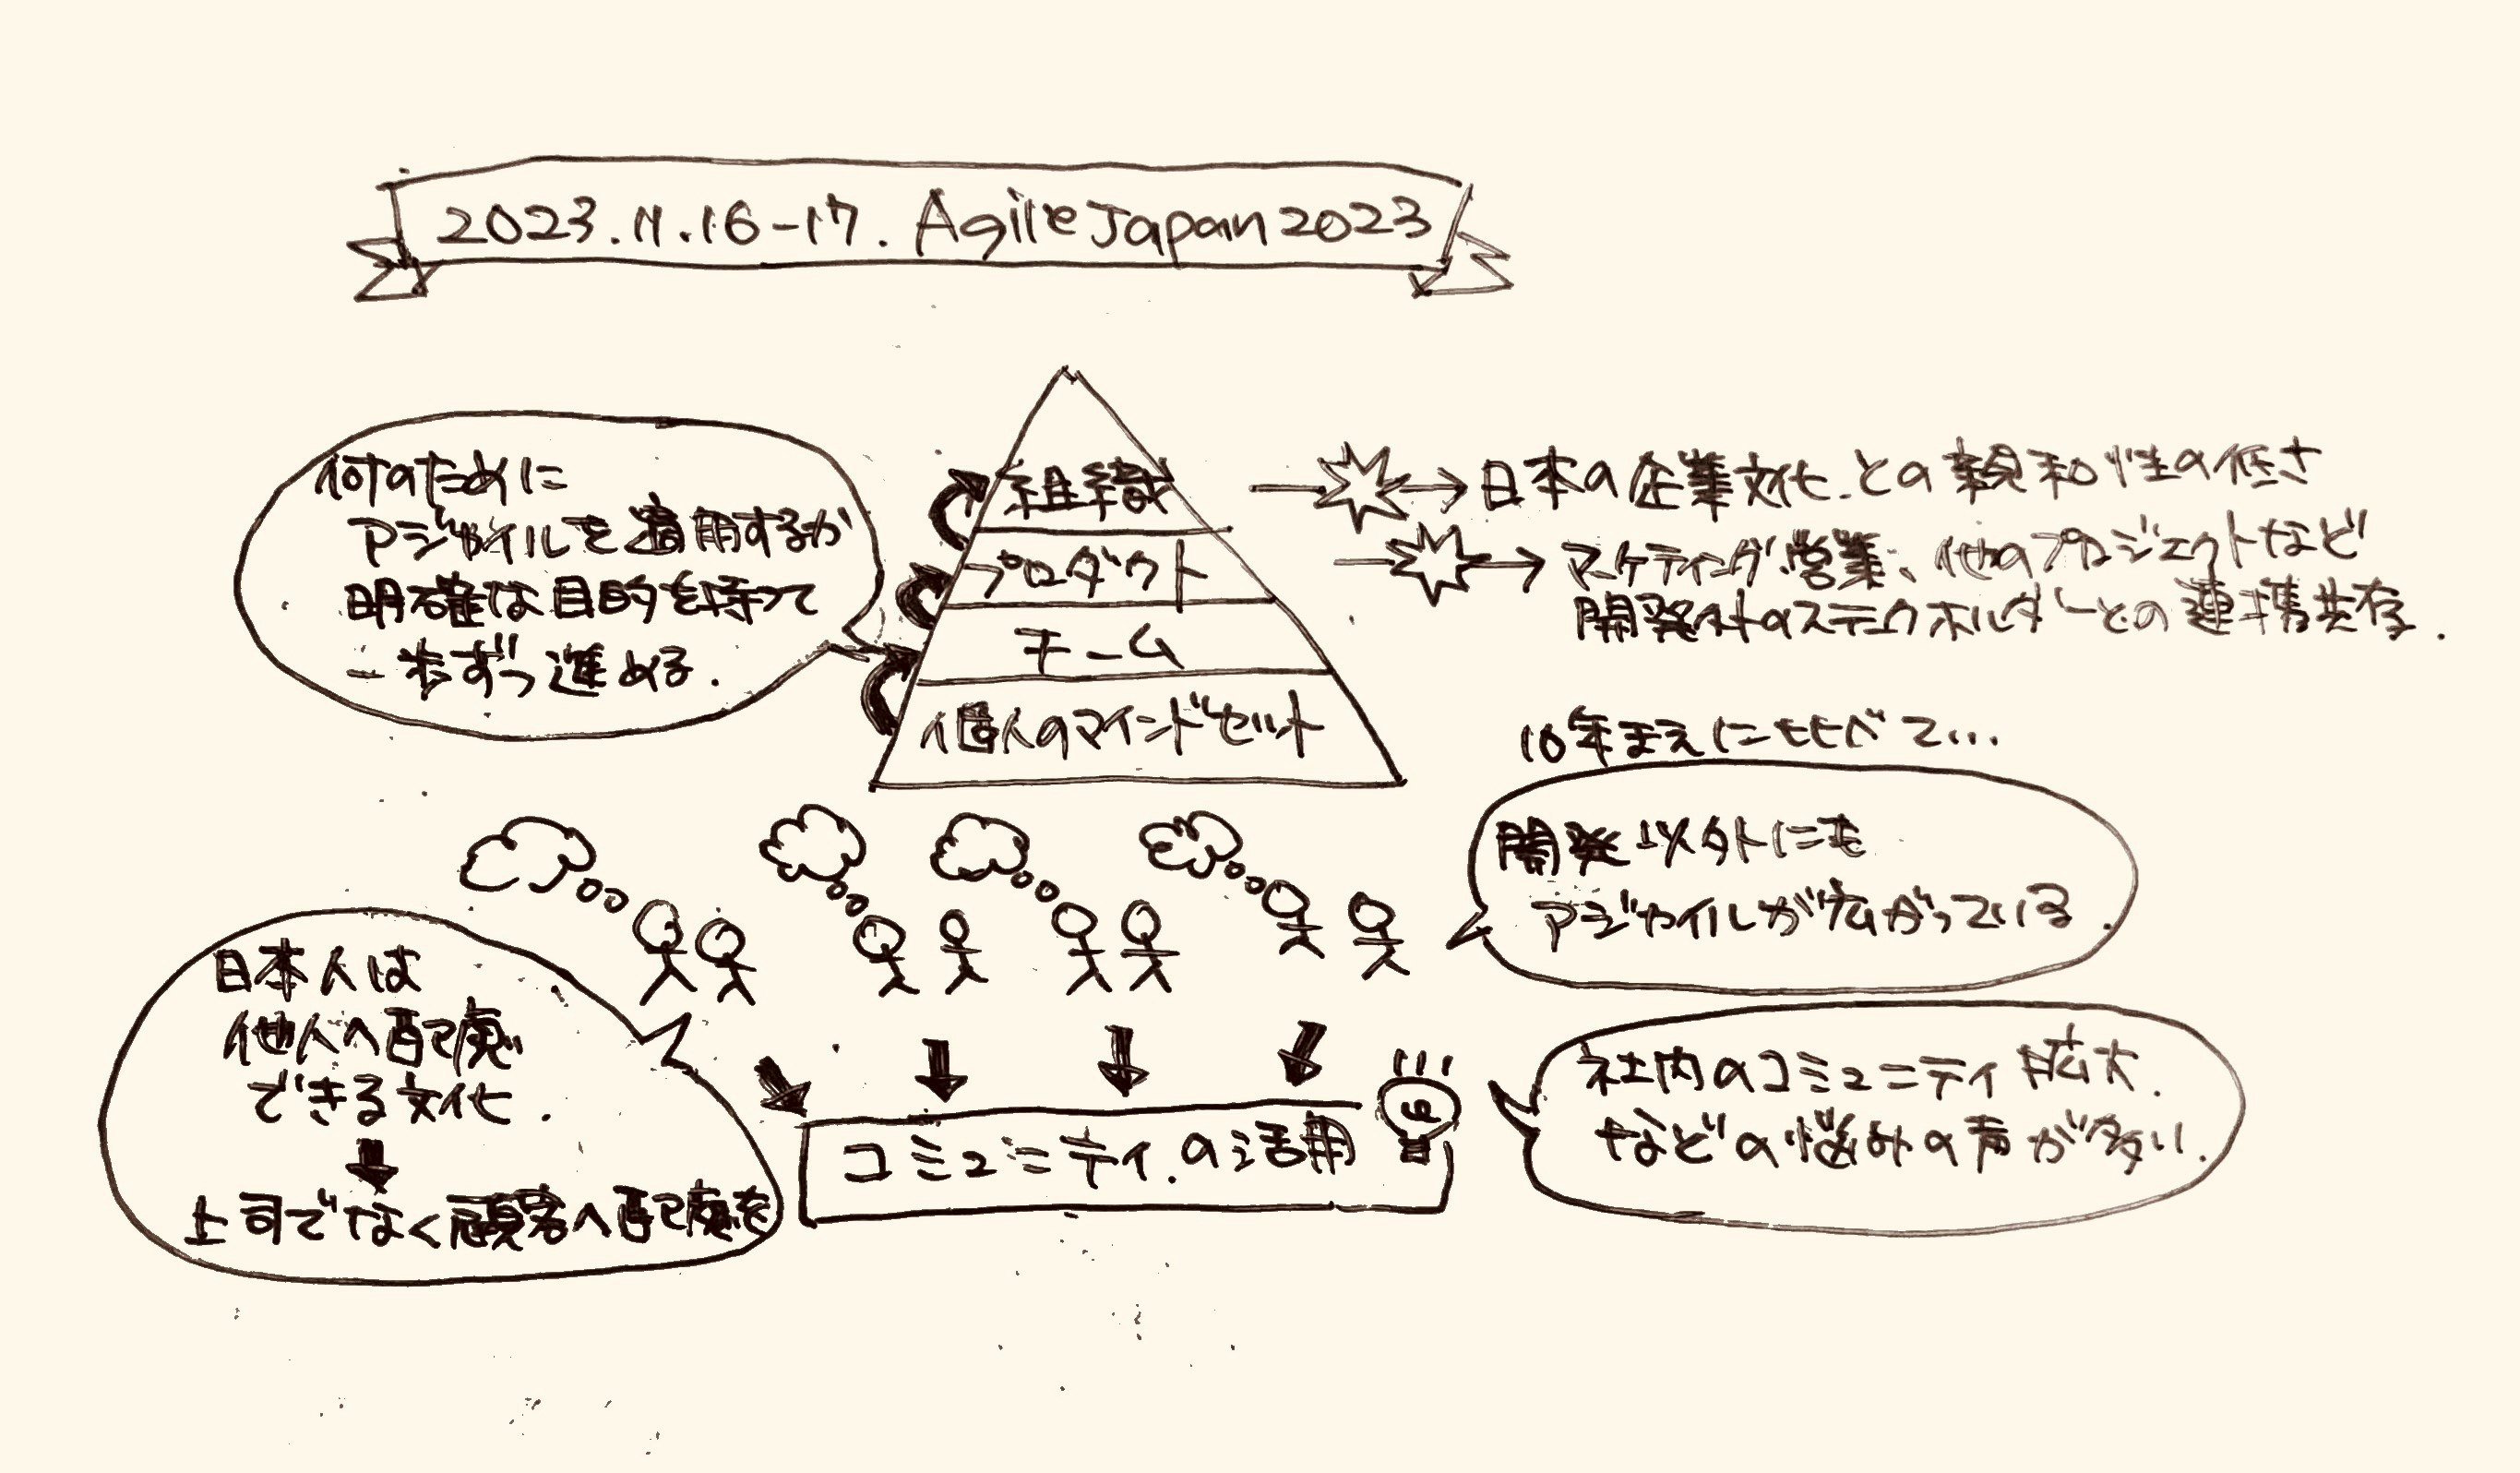 2023.11.16-17. Agile Japan 2023
何のために
アジャイルを適用するか
明確な目的を持って
一歩ずつ進める.
組織
プロダクト
チーム
個人のマインドセット
日本の企業文化との親和性の低さ
マーケティング、営業、他のプロジェクトなど
開発外のステークホルダーとの連携共存.
10年まえに比べて...
開発以外にも
アジャイルが広がっている.
日本人は
他人へ配慮
できる文化.
上司でなく顧客へ配慮を
コミュニティの活用
社内のコミュニティ拡大.
などの悩みの声が多い.